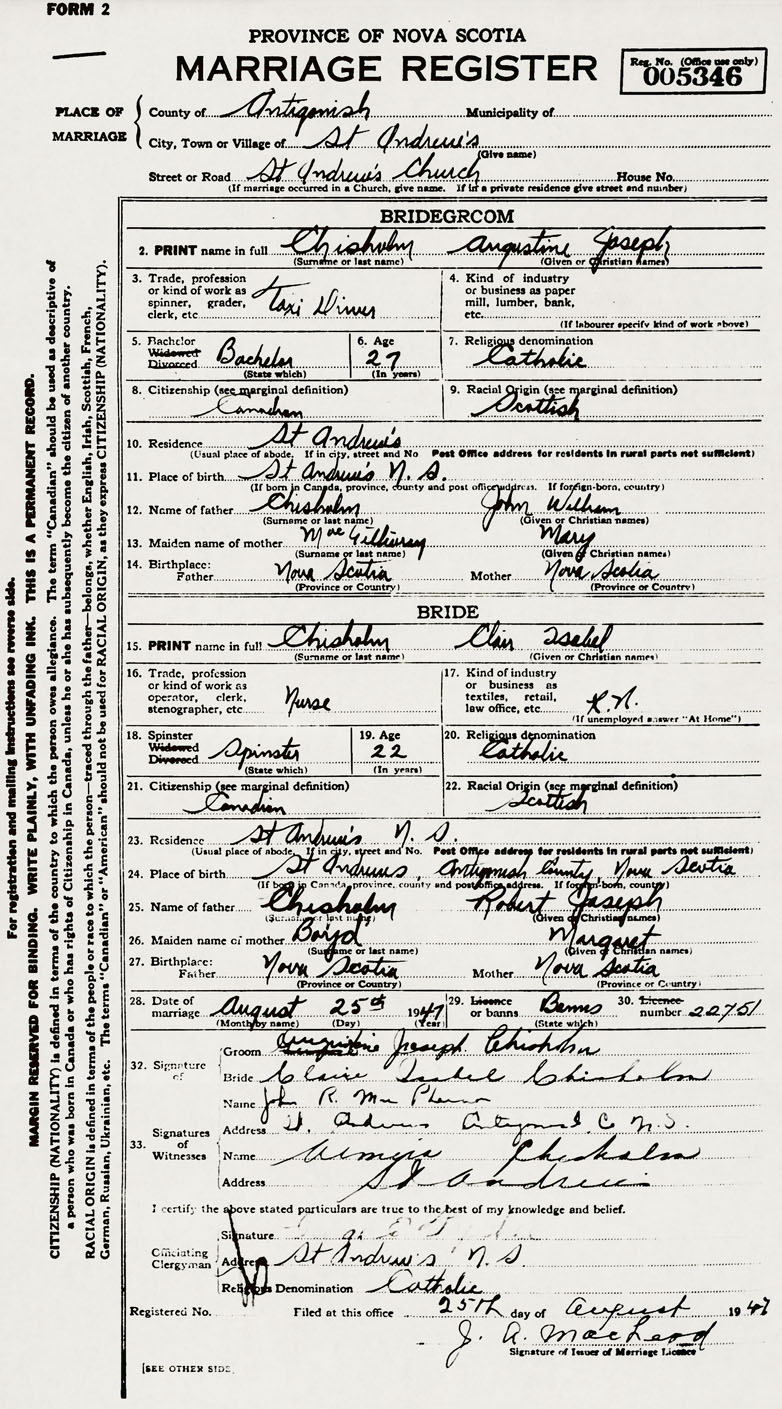 FORM 2
PROVINCE OF NOVA SCOTIA
MARRIAGE REGISTER
Reg. No. (Office use only)
005346
PLACE OF MARRIAGE
County of Antigonish Municipality of
City, Town or Village of St Andrew's
(Give name)
Street or Road St Andrew's Church House No.
(If marriage occurred in a Church, give name. If in a private residence give street and number)
BRIDEGROOM
2. PRINT name in full Chisholm Augustine Joseph
(Surname or last name) (Given or Christian names)
3. Trade, profession or kind of work as spinner, grader, clerk, etc. Taxi Driver
4. Kind of industry or business as paper mill, lumber, bank, etc.
(If labourer specify kind of work above)
5. Bachelor Widowed Divorced Bachelor
(State which)
6. Age 27
(In years)
7. Religious denomination
Catholic
8. Citizenship (see marginal definition)
Canadian
9. Racial Origin (see marginal definition)
Scottish
10. Residence St Andrew's
(Usual place of abode. If in city, street and No Post Office address for residents in rural parts not sufficient)
11. Place of birth St Andrew's N. S.
(If born in Canada, province, county and post office address. If foreign-born, country)
12. Name of father Chisholm John William
(Surname or last name) (Given or Christian names)
13. Maiden name of mother MacGillivray Mary
(Surname or last name) (Given or Christian names)
14. Birthplace: Father Nova Scotia Mother Nova Scotia
(Province or Country) (Province or Country)
BRIDE
15. PRINT name in full Chisholm Clair Isabel
(Surname or last name) (Given or Christian names)
16. Trade, profession or kind of work as operator, clerk, stenographer, etc. Nurse
17. Kind of industry or business as textiles, retail, law office, etc. R.N.
(If unemployed answer "At Home")
18. Spinster Widowed Divorced Spinster
(State which)
19. Age 22
(In years)
20. Religious denomination
Catholic
21. Citizenship (see marginal definition)
Canadian
22. Racial Origin (see marginal definition)
Scottish
23. Residence St Andrew's N. S.
(Usual place of abode. If in city, street and No. Post Office address for residents in rural parts not sufficient)
24. Place of birth St Andrews, Antigonish County, Nova Scotia
(If born in Canada, province, county and post office address. If foreign-born, country)
25. Name of father Chisholm Robert Joseph
(Surname or last name) (Given or Christian names)
26. Maiden name of mother Boyd Margaret
(Surname or last name) (Given or Christian names)
27. Birthplace: Father Nova Scotia Mother Nova Scotia
(Province or Country) (Province or Country)
28. Date of marriage August 25th 1947
(Month by name) (Day) (Year)
29. Licence or banns Banns
(State which)
30. Licence number 22751
32. Signature of
Groom Augustine Joseph Chisholm
Bride Claire Isabel Chisholm
33. Signatures of Witnesses
Name John R. MacPherson
Address St. Andrews Antigonish Co N.S.
Name Chisholm
Address St Andrews
I certify the above stated particulars are true to the best of my knowledge and belief.
Officiating Clergyman
Signature
Address St Andrew's N. S
Religious Denomination Catholic
Registered No. Filed at this office 25th day of August 1947
J. A. MacLeod
Signature of Issuer of Marriage Licence
[SEE OTHER SIDE.
For registration and mailing instructions see reverse side.
MARGIN RESERVED FOR BINDING. WRITE PLAINLY, WITH UNFADING INK. THIS IS A PERMANENT RECORD.
CITIZENSHIP (NATIONALITY) is defined in terms of the country to which the person owes allegiance. The term "Canadian" should be used as descriptive of
a person who was born in Canada or who has rights of Citizenship in Canada, unless he or she has subsequently become the citizen of another country.
RACIAL ORIGIN is defined in terms of the people or race to which the person—traced through the father—belongs, whether English, Irish, Scottish, French,
German, Russian, Ukrainian, etc. The terms "Canadian" or "American" should not be used for RACIAL ORIGIN, as they express CITIZENSHIP (NATIONALITY).